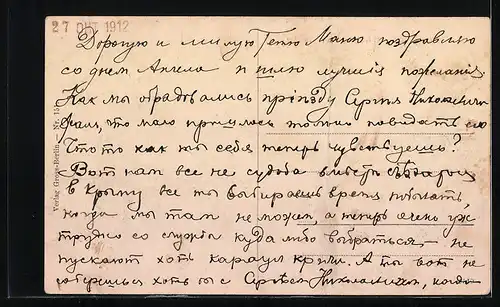 27 ОКТ 1912
Дорогую и милую Тетю Маню поздравляю
со днем Ангела и шлю лучшія пожеланія.
Как мы обрадовались пріѣзду Сергѣя Николаевича
жаль, что мало пришлось только повидать его
Что то как ты себя теперь чувствуешь?
Вот нам все не судьба вместѣ
в Крыму все ты выбираешь время поѣхать,
когда мы там не можем, а теперь очень уж
трудно со службы куда либо выбраться — не
пускают хоть караул кричи. А ты вот не
соберешься хоть бы с Сергѣем Николаевичем, когда
Verlag Gross-Berlin Nr. 151